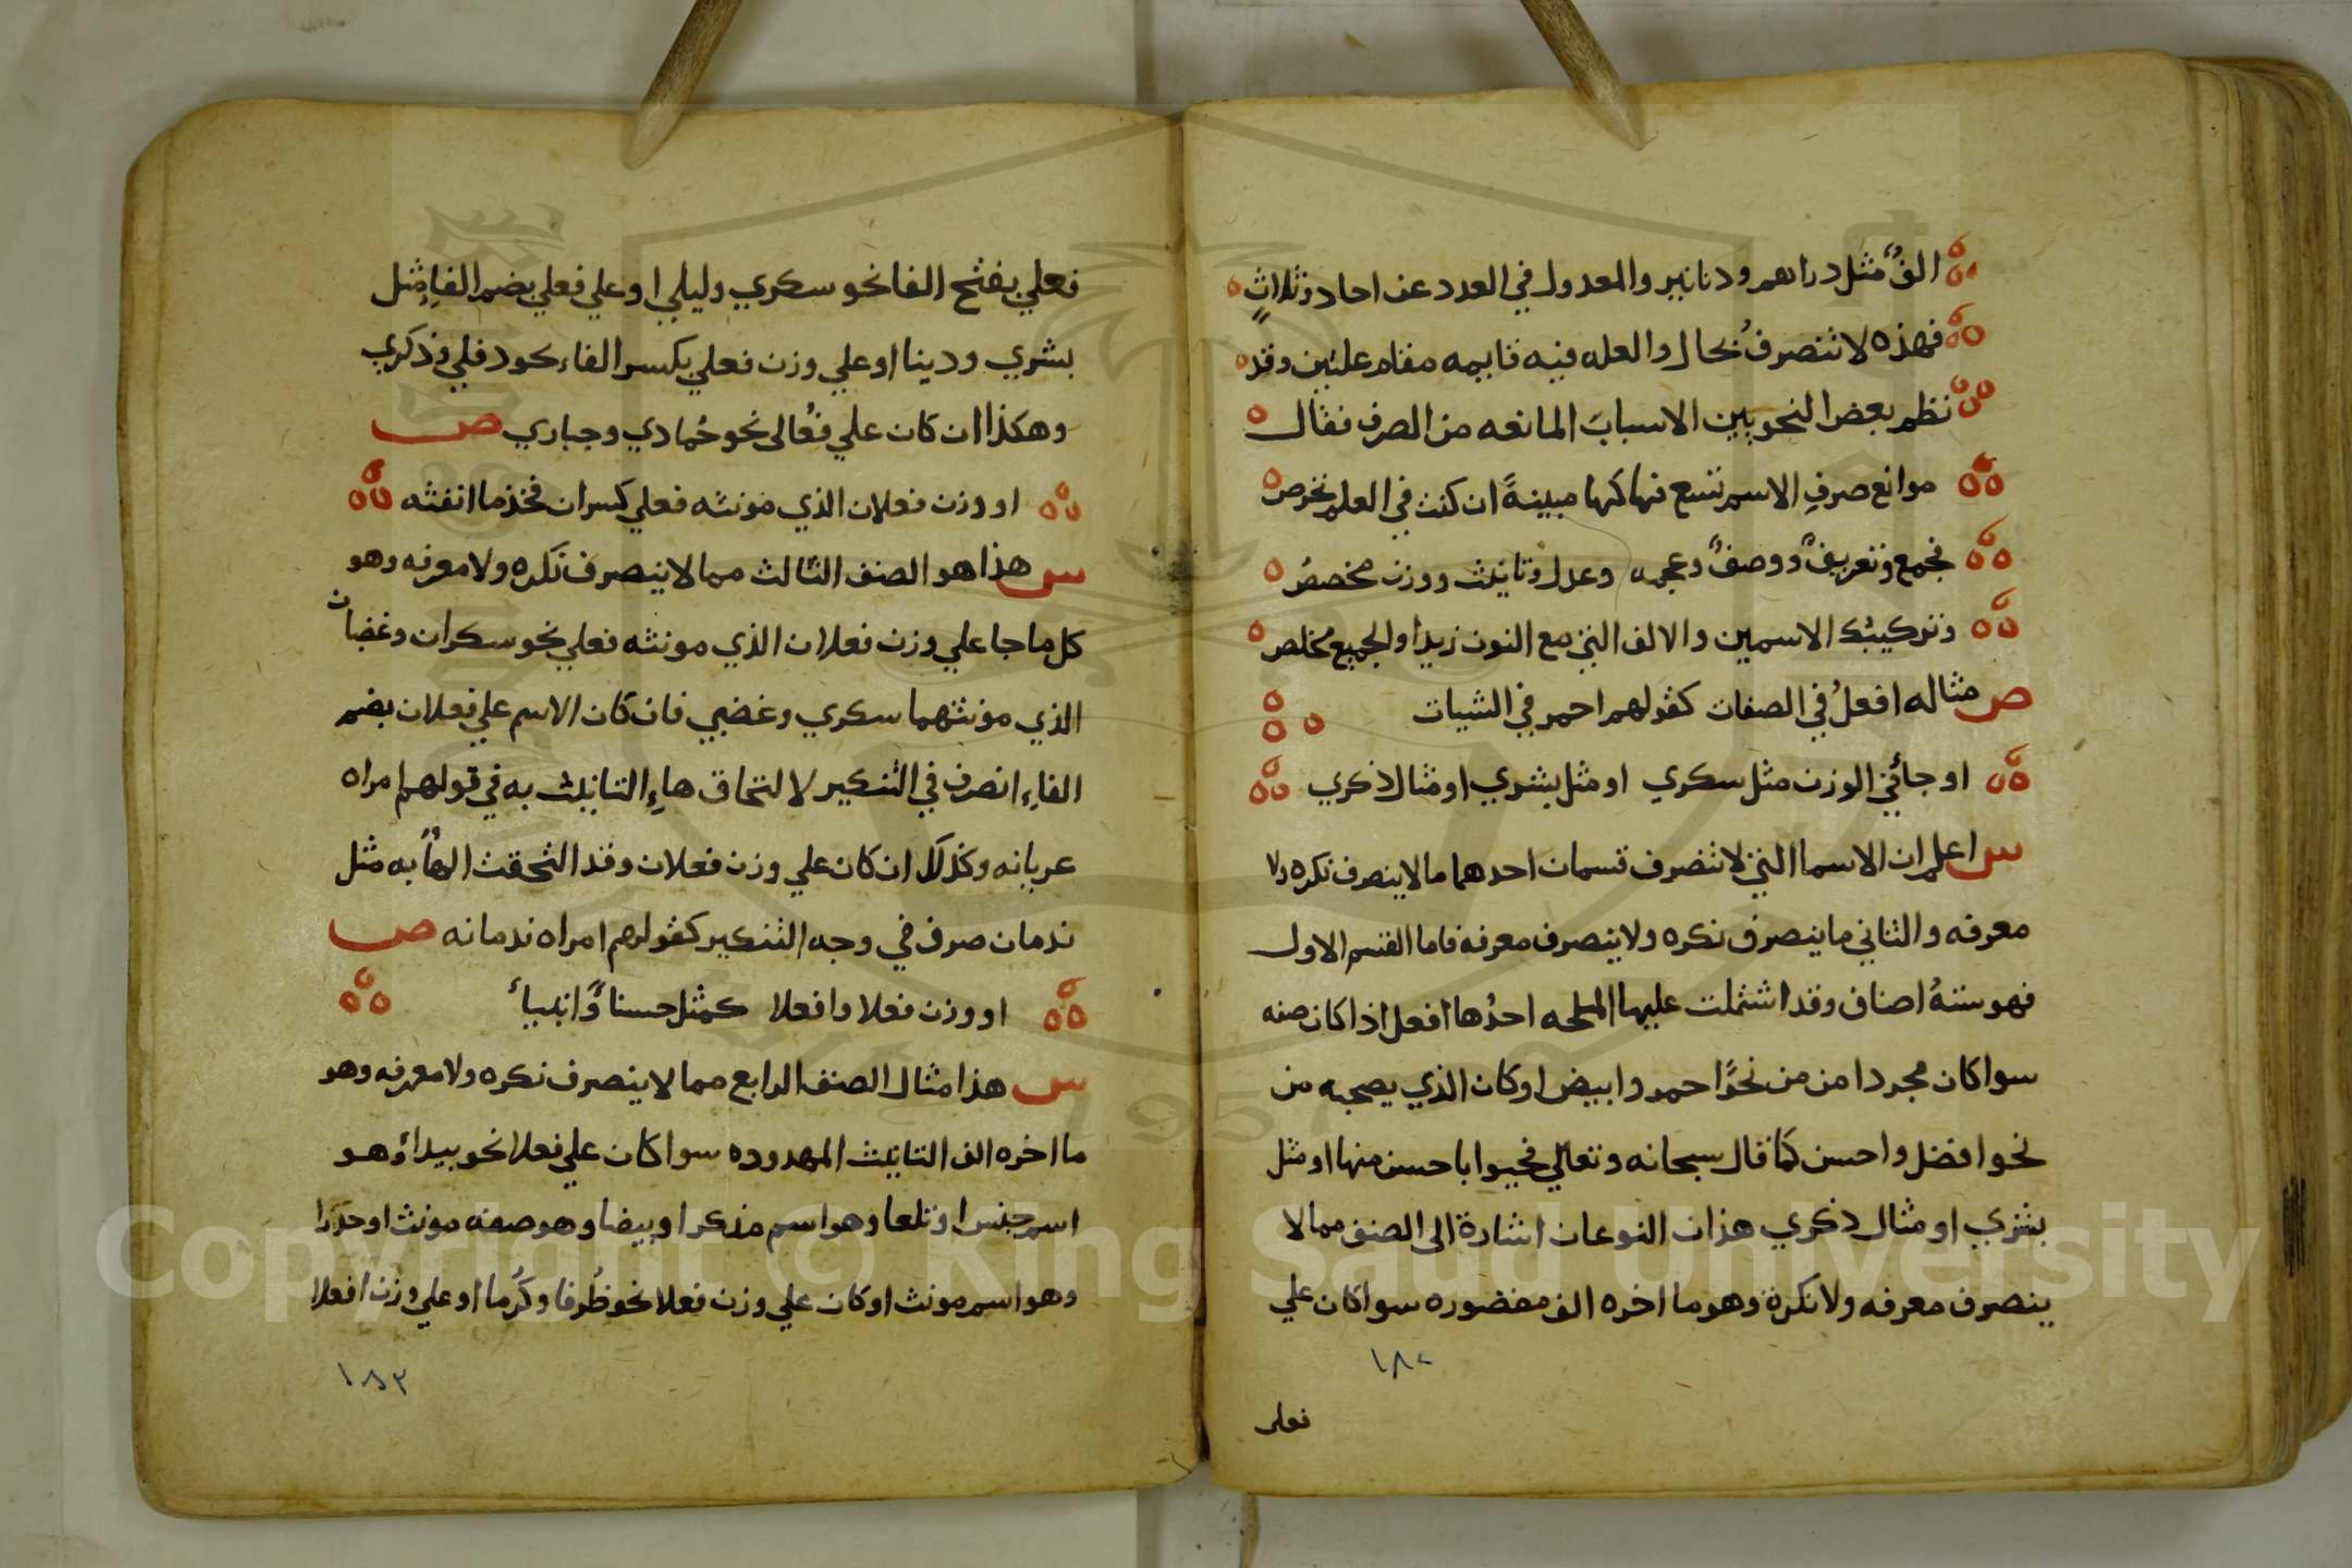 الفٌ مثل دراهم ودنانير والمعدول في العدد عن احاد وثلاثٍ
فهذه لا تنصرفُ بحال والعله فيه قايمه مقام علتين وقد
نظم بعض النحويين الاسبابَ المانعه من الصرف فقال
موانع صرفِ الاسم تسع فهاكها مبينةً ان كنت في العلم تخرص
فجمع وتعريفٌ ووصفٌ وعجمه وعدل وتانيث ووزن مخصصُ
وتركيبك الاسمين والالف التي مع النون زيدا والجميع مخلص
ص مثاله افعلُ في الصفات كقولهم احمر في الشيات
او جائي الوزن مثل سكري او مثل بشري او مثال ذكري
س اعلم ان الاسما التي لا تنصرف قسمان احدهما ما لا ينصرف نكره ولا
معرفه والثاني ما ينصرف نكره ولا ينصرف معرفه فاما القسم الاول
فهو ستةُ اصناف وقد اشتملت عليها الملحه احدُها افعل اذا كان صفه
سوا كان مجردا من من نحوُ احمر وابيض او كان الذي يصحبه من
نحو افضل واحسن كما قال سبحانه وتعالي فحيوا باحسن منها او مثل
بشري او مثال ذكري هذان النوعان اشارة الى الصنف مما لا
ينصرف معرفه ولا نكرة وهو ما اخره الف مقصوره سوا كان علي
١٨٢
فعلى
فعلي بفتح الفا نحو سكري وليلي او علي فعلي بضم الفاءِ مثل
بشري ودينا او علي وزن فعلي بكسر الفاء كود فلي وذكري
وهكذا ان كان علي فُعالى نحو حُمادي وحباري ص
او وزن فعلان الذي مونثه فعلي كسران فخذ ما انفثه
س هذا هو الصنف الثالث مما لا ينصرف نكره ولا معرفه وهو
كل ما جا علي وزن فعلان الذي مونثه فعلي نحو سكران وغضبان
الذي مونثهما سكري وغضبي فان كان الاسم علي فعلان بضم
الفاءِ انصرف في التنكير لا لتحاق هاءِ التانيث به في قولهم امراه
عريانه وكذلك ان كان علي وزن فعلان وقد التحقت الهأ به مثل
ندمان صرف في وجه التنكير كقولهم امراه ندمانه ص
او وزن فعلا وافعلا كمثل حسنا وانبياء
س هذا مثال الصنف الرابع مما لا ينصرف نكره ولا معرفه وهو
ما اخره الف التانيث الممدوده سوا كان علي فعلا نحو بيدا وهو
اسم جنس او تلعا وهو اسم مذكر او بيضا وهو صفه مونث او
وهو اسم مونث او كان علي وزن فعلا نحو ظُرفا وكُرما او علي وزن افعلا
١٨٣
Copyright © King Saud University
1957